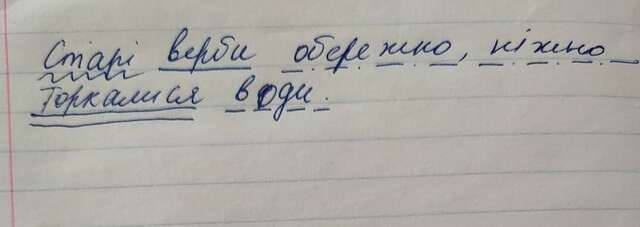 Старі верби обережно, ніжно
торкалися води.